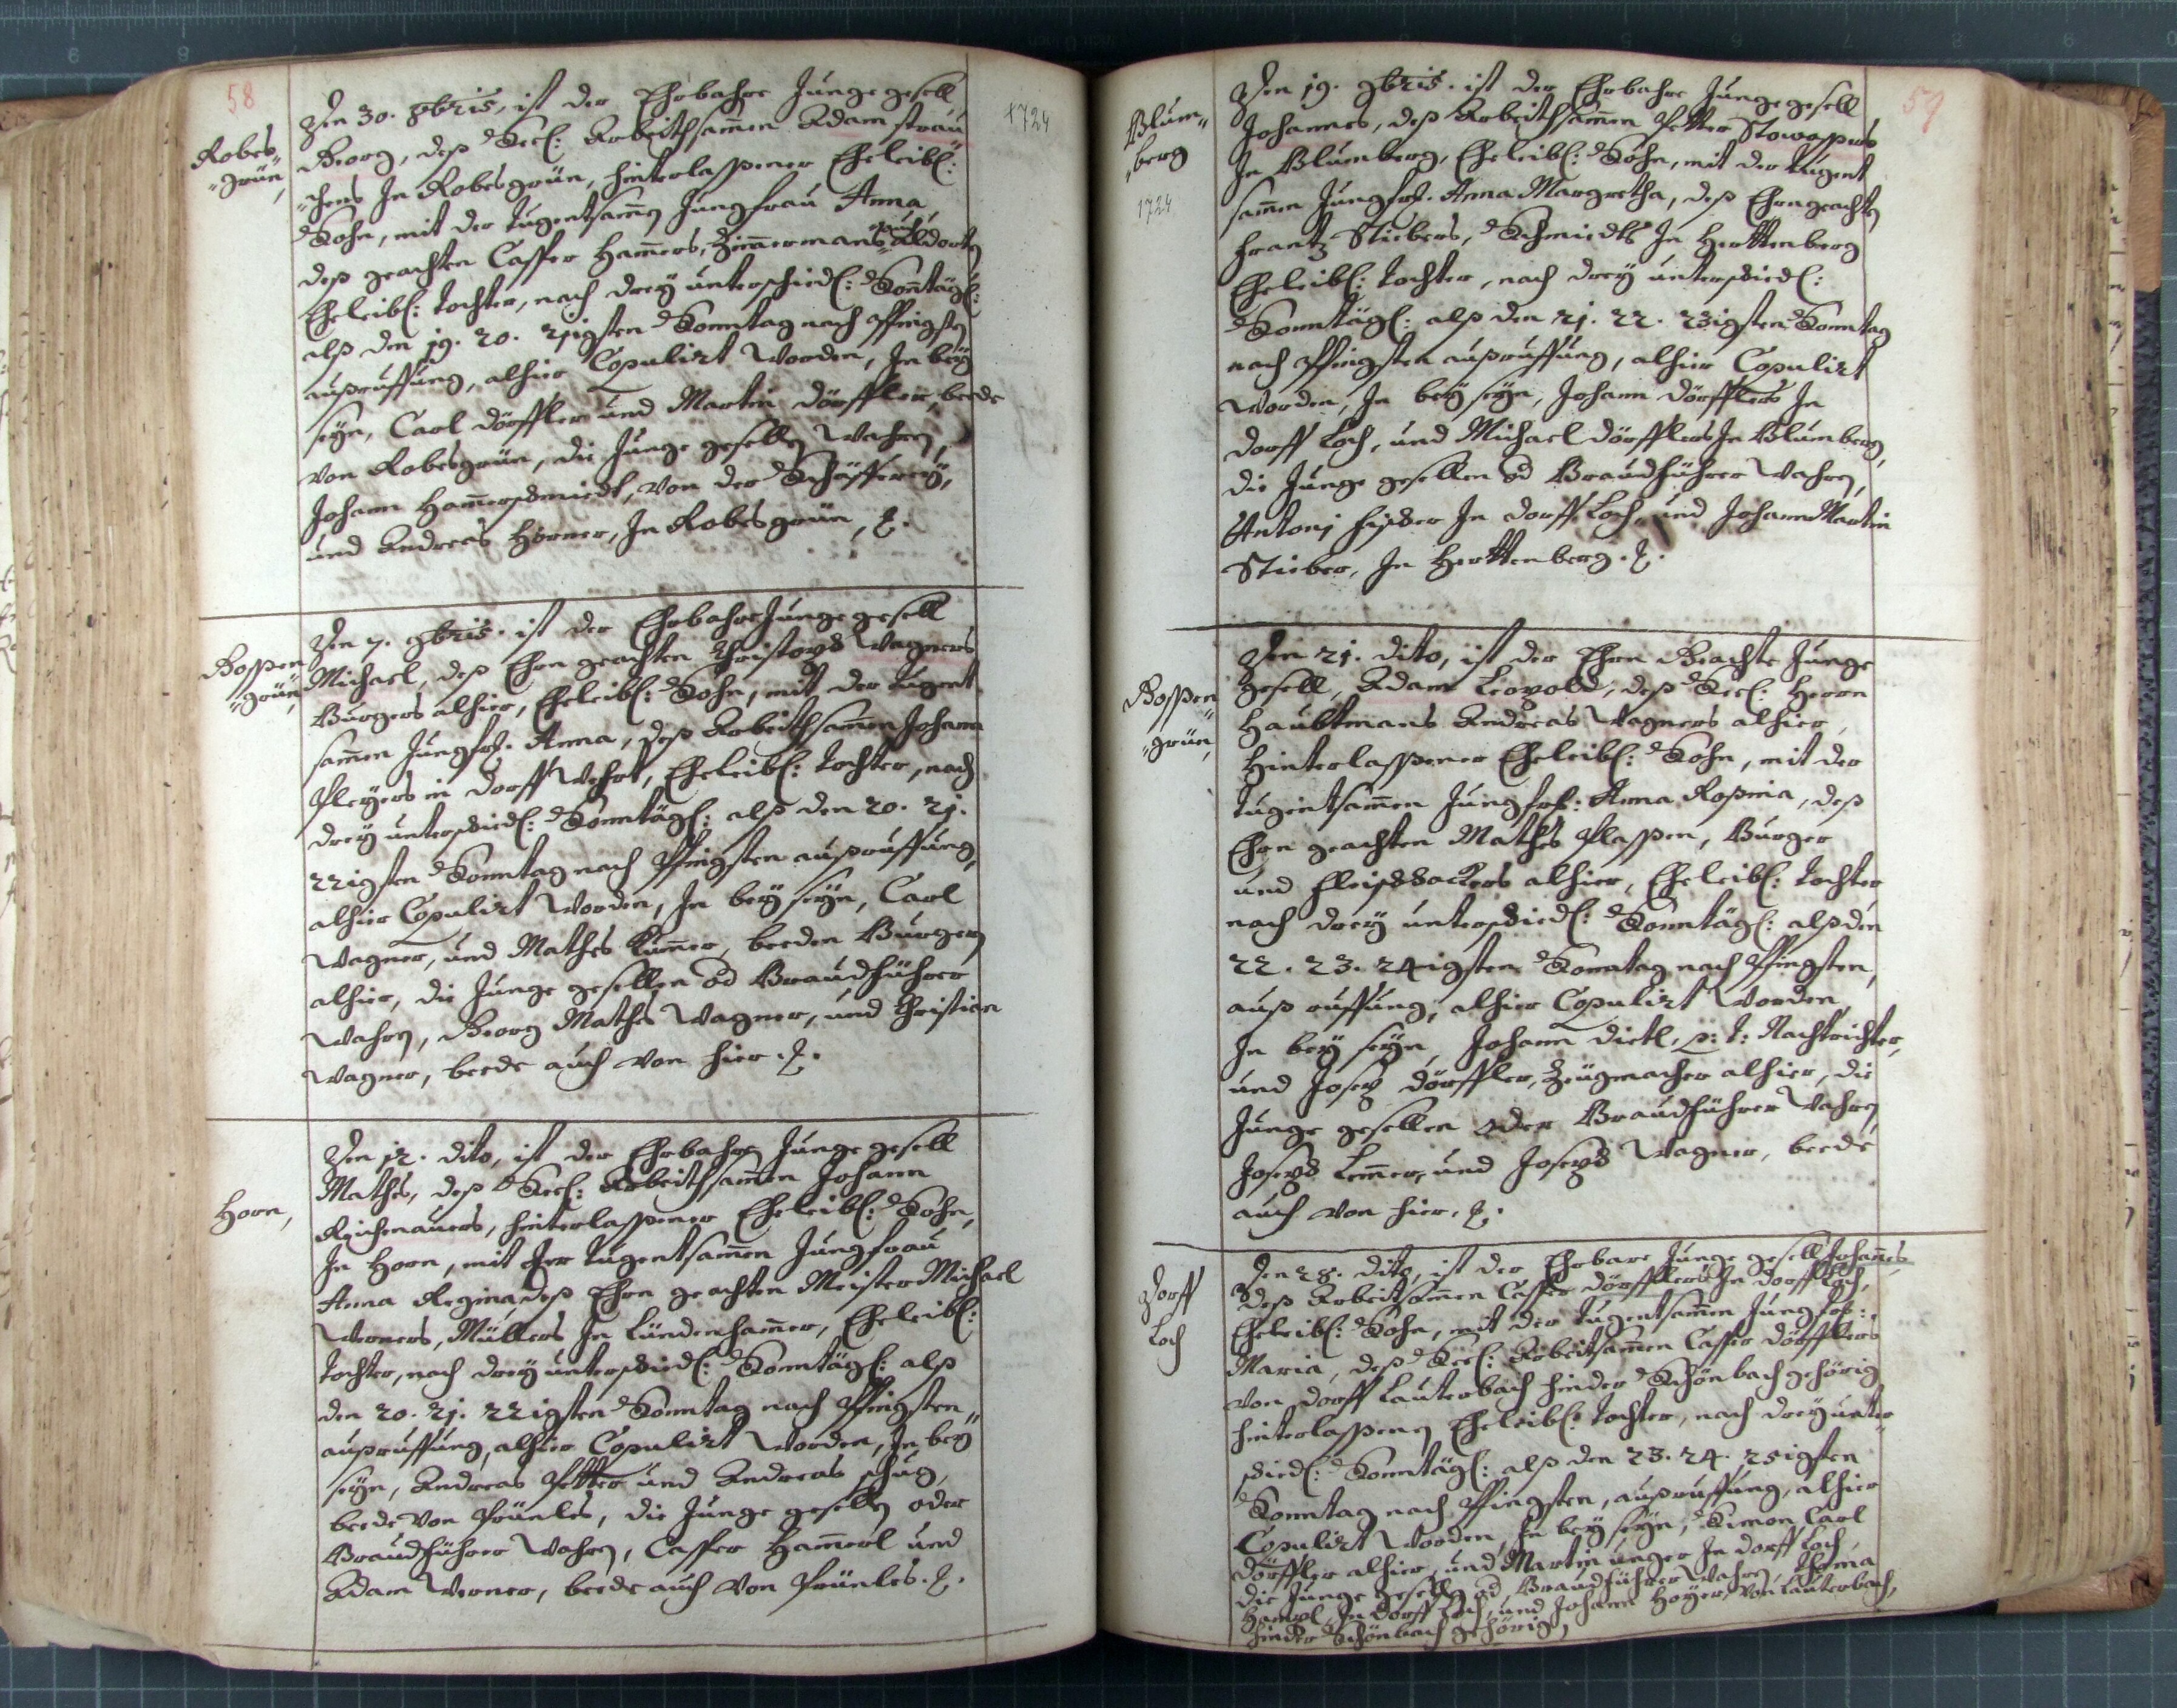 58
1724
Robes„
„grün,
Den 30. 8bris, ist der Ehrbahre Junge gesell
Georg, deß Seel: Arbeithsam̅en Adam strau„
„ßens In Robesgrün, hinterlaßener Eheleibl:
Sohn, mit der tugentsam̅en Jungfrau Anna
deß geachten Casper Ham̅ers, Zim̅ermans auch Aldorten
Eheleibl: tochter, nach drey unterschiedl: Son̅tägl:
alß den 19. 20. 21igsten Sonntag nach Pfingsten
außruffung, alhier Copulirt worden, In bey
seyn, Carl dörffler und Martin dörffler, beede
von Robesgrün, die Junge gesellen wahren,
Johann Ham̅erschmiedt, von der Schäfferey,
und Andreas Hörner, In Robesgrün, ?.
Goßen
„grün,
Den 7. 9bris. ist der Ehrbahre Junge gesell
Michael, deß Ehrn geachten Christoph Wagners
Burgers alhier, Eheleibl: Sohn, mit der tugent
sam̅en Jungfr. Anna, deß Arbeithsam̅en Johann
Pleyers in dorff Wehrt, Eheleibl: tochter, nach
drey unterschiedl: Sonntägl: alß den 20. 21.
22igsten Sonntag nach Pfingsten außruffung,
alhier Copulirt worden, In bey seyn, Carl
Wagner, und Mathes Kum̅er, beeden Burgern
alhier, die Junge gesellen od Braudführer
wahren, Georg Mathes Wagner, und Christian
Wagner, beede auch von hier. ?.
Horn,
Den 12. dito, ist der Ehrbahre Junge gesell
Mathes, deß Seel: Arbeithsam̅en Johann
Reichenauers, hinterlaßener Eheleibl: Sohn,
In Horn, mit der tugentsam̅en Jungfrau
Anna Regina, deß Ehrn geachten Meister Michael
Werners, Müllers In Lündenham̅er, Eheleibl:
tochter, nach drey unterschiedl: Sonntägl: alß
den 20. 21. 22igsten Sonntag nach Pfingsten„
außruffung, alhier Copulirt worden, In bey
seyn, Andreas Petter und Andreas schug,
beede von Prünles, die Junge gesellen oder
Braudführer wahren, Casper Ham̅erl und
Adam Werner, beede auch von Prünles. ?.
59
Blum„
„berg
1724
Den 19. 9bris. ist der Ehrbahre Junge gesell
Johannes, deß Arbeithsam̅en Petter Stowaßers
In Blumberg, Eheleibl: Sohn, mit der tugent
sam̅en Jungfr. Anna Margretha, deß Ehrngeachten
Frantz Stiebers, Schmiedts In Herttenberg
Eheleibl: tochter, nach drey unterschiedl:
Sonntägl: alß den 21. 22. 23igsten Sonntag
nach Pfingsten außruffung, alhier Copulirt
worden, In bey seyn, Johann dörfflers In
dorff Loch, und Michael dörfflers In Blumberg,
die Junge gesellen od Braudführer wahren,
Antoni Fischer In dorff Loch, und Johann Martin
Stieber, In Herttenberg. ?.
Goßen
„grün,
Den 21. dito, ist der Ehrn Geachte Junge
gesell, Adam Leopold, deß Seel: Herrn
Haubtmans Andreas Wagners alhier,
Hinterlaßener Eheleibl: Sohn, mit der
tugentsam̅en Jungfr: Anna Roßina, deß
Ehrn geachten Mathes Plaßen, Burger
und fleischhackers alhier, Eheleibl: tochter
nach drey unterschiedl: Sonntägl: alß den
22. 23. 24igsten Sonntag nach Pfingsten,
auß ruffung, alhier Copulirt worden,
In bey seyn, Johann dietl, p: t: Nachtrichter,
und Josep dörffler, Zeugmacher alhier, die
Junge gesellen oder Braudführer wahren,
Joseph Lem̅er, und Joseph Wagner, beede
auch von hier, ?.
Dorff
Loch
Den 28. dito, ist der Ehrbare Junge gesell Johan̅es
deß Arbeitsam̅en Casper dörfflers In dorff Loch,
Eheleibl: Sohn, mit der tugentsam̅en Jungfr:
Maria, deß Seel: Arbeitsam̅en Casper dörfflers
von dorff Lauterbach hinder Schönbach gehörig
hinterlaßenen Eheleibl: tochter, nach drey unter„
schiedl: Sonntägl: alß den 23. 24. 25igsten
Sonntag nach Pfingsten, außruffung, alhier
Copulirt worden, In bey seyn, Simon Carl
dörffler alhier, und Martin unger In dorff Loch,
die Junge gesellen od Braudführer wahren, Thoma
Hampl, In dorff Loch, und Johann Hoyer, von Lauterbach,
hinder Schönbach gehörig,